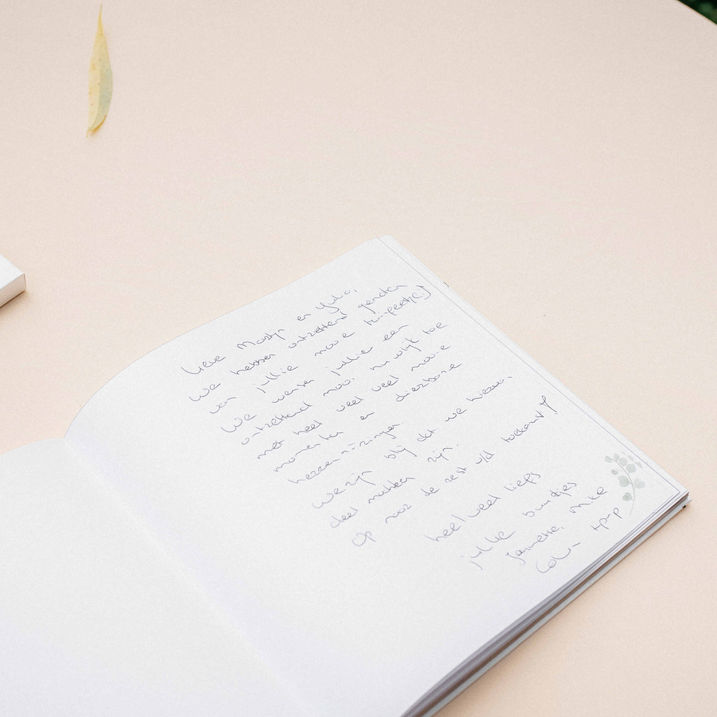 Lieve Martijn en
We hebben ontzettend genoten
van jullie mooie
We wensen jullie een
ontzettend mooi huwelijk toe
met heel veel veel mooie
momenten en dierbare
herinneringen.
We zijn blij dat we hiervan
deel mochten zijn.
Op naar de rest vd toekomst
heel veel liefs
jullie buurtjes
Mike